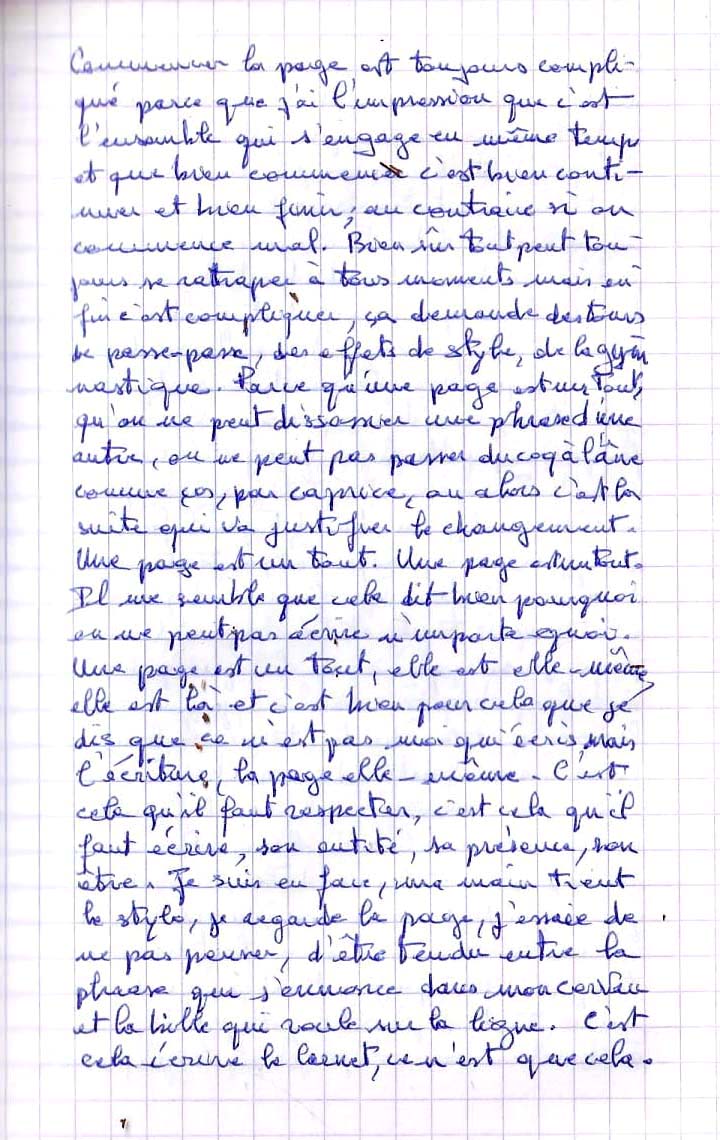 Commencer la page est toujours compli-
qué parce que j'ai l'impression que c'est
l'ensemble qui s'engage en même temps
et que bien commencer c'est bien conti-
nuer et bien finir, au contraire si on
commence mal. Bien sûr tout peut tou-
jours se rattraper à tous moments mais en
fin c'est compliquer, ça demande des tours
de passe-passe, des effets de style, de la gym
nastique. Parce qu'une page est un tout,
qu'on ne peut dissocier une phrase d'une
autre, on ne peut pas passer du coq à l'âne
comme ça, par caprice, ou alors c'est la
suite qui va justifier le changement.
Une page est un tout. Une page est un tout.
Il me semble que cela dit bien pourquoi
on ne peut pas écrire n'importe quoi.
Une page est un tout, elle est elle-même,
elle est là et c'est bien pour cela que je
dis que ce n'est pas moi qui écris mais
l'écriture, la page elle-même. C'est
cela qu'il faut respecter, c'est cela qu'il
faut écrire, son entité, sa présence, son
être. Je suis en face, ma main tient
le stylo, je regarde la page, j'essaie de
ne pas penser, d'être tendu entre la
phrase qui s'énnonce dans mon cerveau
et la bille qui roule sur la ligne. C'est
cela écrire le carnet, ce n'est que cela.